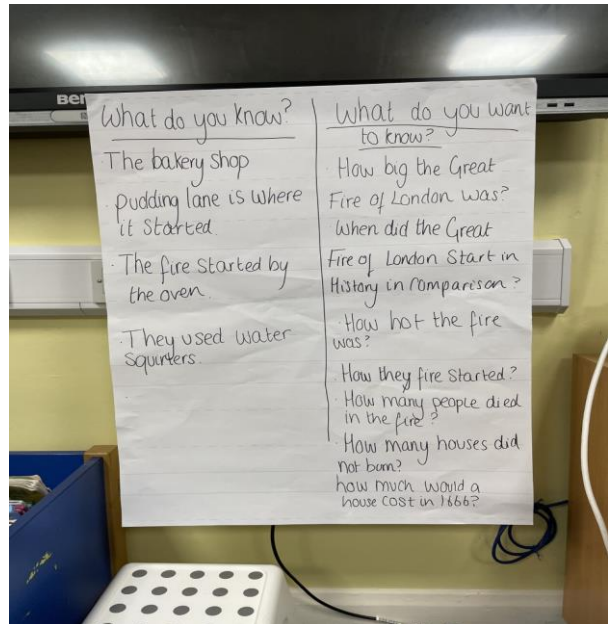 Ben
What do you know?
The bakery shop
pudding lane is where
it started.
· The fire started by
the oven.
· They used water
squirters.
What do you want
to know?
· How big the Great
Fire of London was?
When did the Great
Fire of London Start in
History in comparison?
· How hot the fire
was?
· How they fire started?
· How many people died
in the fire?
· How many houses did
not burn?
how much would a
house cost in 1666?